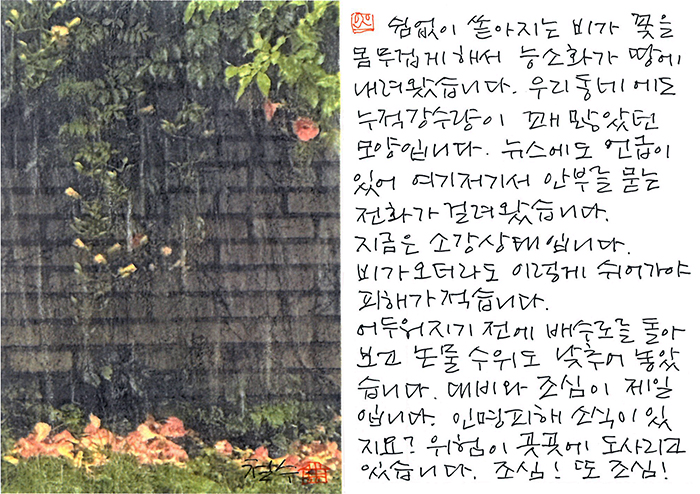 쉼없이 쏟아지는 비가 꽃을
몸무겁게 해서 능소화가 땅에
내려왔습니다. 우리동네에도
누적강수량이 꽤 많았던
모양입니다. 뉴스에도 언급이
있어 여기저기서 안부를 묻는
전화가 걸려왔습니다.
지금은 소강상태입니다.
비가오더라도 이렇게 쉬어가야
피해가 적습니다.
어두워지기 전에 배수로를 돌아
보고 논물 수위도 낮추어 놓았
습니다. 대비와 조심이 제일
입니다. 인명피해 소식이 있
지요? 위험이 곳곳에 도사리고
있습니다. 조심! 또 조심!
철수